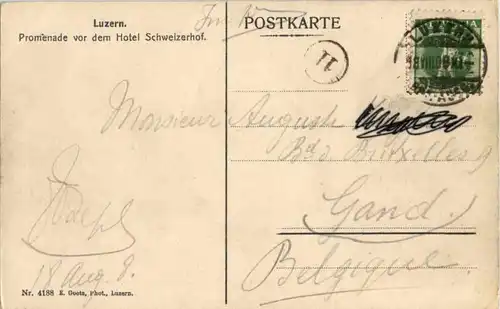 Luzern.
Promenade vor dem Hotel Schweizerhof.
POSTKARTE
11
Monsieur Auguste
Bd Bruxelles 9
Gand.
Belgique
18 Aug. 8.
Nr. 4188 E. Goetz, Phot., Luzern.